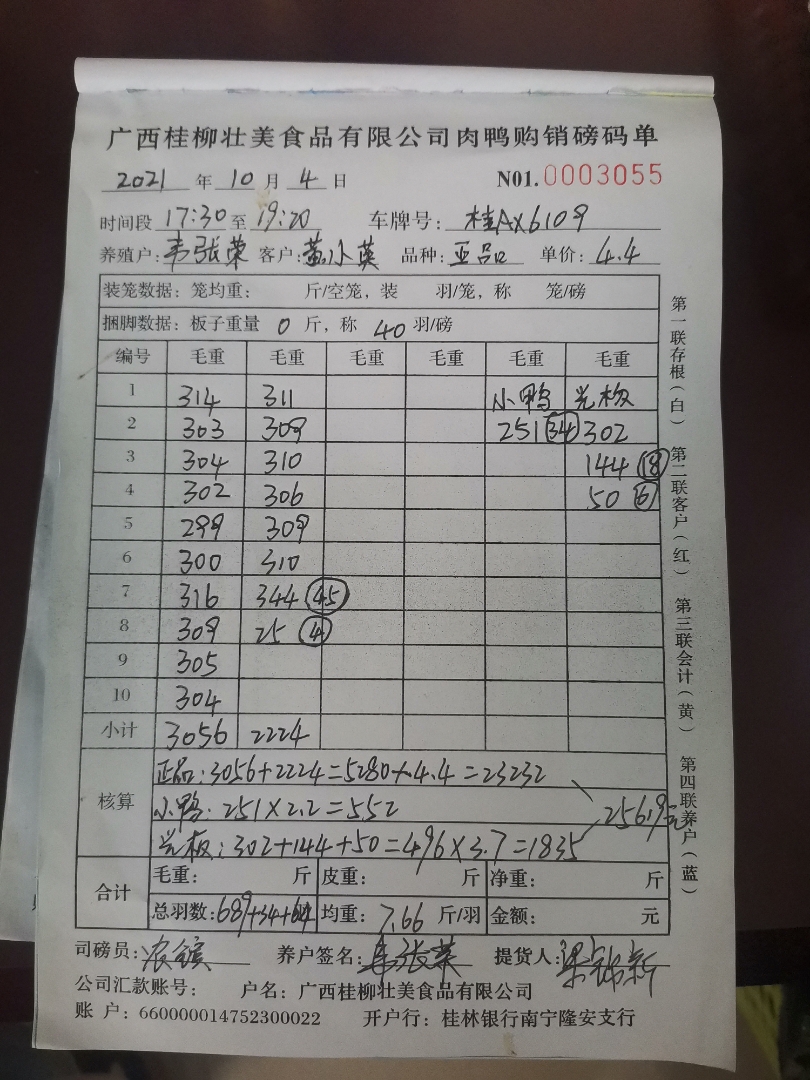 广西桂柳壮美食品有限公司肉鸭购销磅码单
2021 年 10 月 4 日 N01.0003055
时间段 17:30 至 19:20 车牌号: 桂AX6109
养殖户: 韦张荣 客户: 黄小英 品种: 正品 单价: 4.4
装笼数据: 笼均重: 斤/空笼, 装 羽/笼, 称 笼/磅
捆脚数据: 板子重量 0 斤, 称 40 羽/磅
编号 毛重 毛重 毛重 毛重 毛重 毛重
1 314 311 小鸭 光板
2 303 309 251 34 302
3 304 310 144 18
4 302 306 50 6
5 299 309
6 300 310
7 316 344 45
8 309 25 4
9 305
10 304
小计 3056 2224
核算
正品: 3056+2224=5280×4.4=23232
小鸭: 251×2.2=552
光板: 302+144+50=496×3.7=1835
25619元
合计
毛重: 斤 皮重: 斤 净重: 斤
总羽数: 689+34+64 均重: 7.66 斤/羽 金额: 元
司磅员: 养户签名: 韦张荣 提货人:
公司汇款账号: 户名: 广西桂柳壮美食品有限公司
账 户: 660000014752300022 开户行: 桂林银行南宁隆安支行
第一联存根(白) 第二联客户(红) 第三联会计(黄) 第四联养户(蓝)